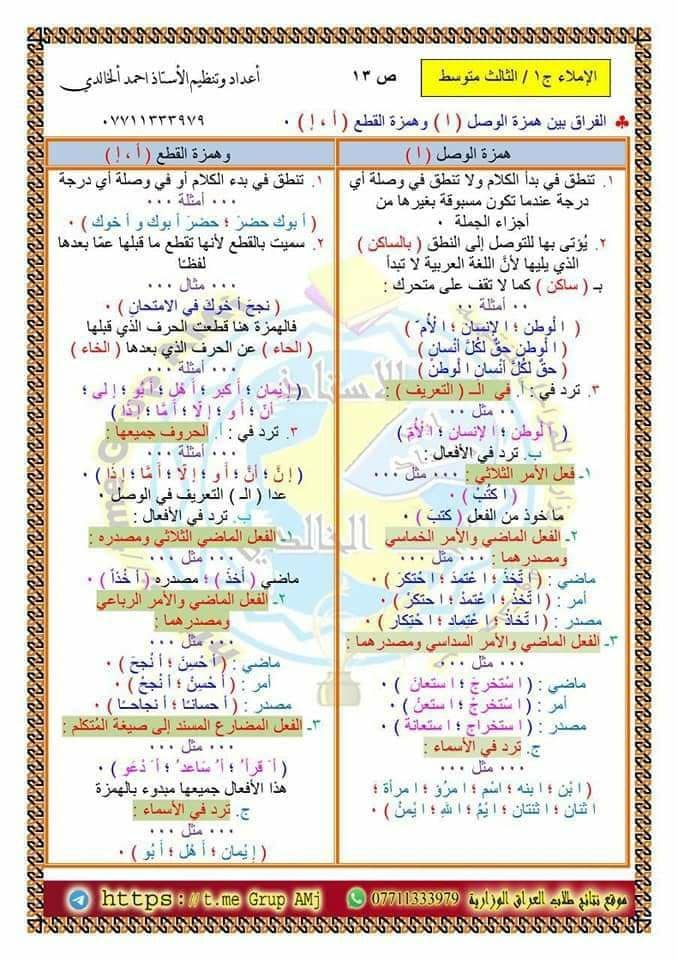 الإملاء ج١ / الثالث متوسط
ص ١٣
أعداد وتنظيم الأستاذ احمد الخالدي
♣ الفراق بين همزة الوصل ( ا ) وهمزة القطع ( أ ، إ ) ٠
٠٧٧١١٣٣٣٩٧٩
همزة الوصل ( ا )
١. تنطق في بدأ الكلام ولا تنطق في وصلة أي
درجة عندما تكون مسبوقة بغيرها من
أجزاء الجملة ٠
٢. يُؤتى بها للتوصل إلى النطق ( بالساكن )
الذي يليها لأنَّ اللغة العربية لا تبدأ
بـ ( ساكن ) كما لا تقف على متحرك :
٠٠ أمثلة ٠٠
( الوطن ؛ الإنسان ؛ الْأُمّ )
( الوطن حقٌ لكُلَّ أنسانٍ )
( حقٌ لكُلَّ أنسانٍ الوطنُ )
٣. ترد في : أ. في الـ ( التعريف ) :
٠٠ مثل ٠٠
( الوطن ؛ الإنسان ؛ الْأُمّ )
ب. ترد في الأفعال :
١- فعل الأمر الثلاثي : ٠٠٠ مثل ٠٠٠
( اكتُبْ ) ٠
ما خوذ من الفعل ( كتبَ ) ٠
٢- الفعل الماضي والأمر الخماسي
ومصدرهما : ٠٠٠ مثل ٠٠٠
ماضي : ( اتّخذَ ؛ اعْتمدَ ؛ احْتكرَ ) ٠
أمر : ( اتّخذْ ؛ اعْتمدْ ؛ احتكرْ ) ٠
مصدر : ( اتّخاذ ؛ اعْتِماد ؛ احْتِكار ) ٠
٣- الفعل الماضي والأمر السداسي ومصدرهما :
٠٠٠ مثل ٠٠٠
ماضي : ( اسْتخرجَ ؛ استعانَ ) ٠
أمر : ( اسْتخرجْ ؛ استعنْ ) ٠
مصدر : ( استخراج ؛ استعانة ) ٠
ج. ترد في الأسماء :
٠٠٠ مثل ٠٠٠
( ابْن ؛ ابنه ؛ اسْم ؛ امرُؤ ؛ امرأة ؛
اثنان ؛ اثنتان ؛ ايْمُ ؛ اللهِ ؛ ايْمنُ ) ٠
وهمزة القطع ( أ ، إ )
١. تنطق في بدء الكلام أو في وصلة أي درجة
٠٠٠ أمثلة ٠٠٠
( أبوك حضرَ ؛ حضرَ أبوك وأخوك ) ٠
٢. سميت بالقطع لأنها تقطع ما قبلها عمّا بعدها
لفظًا
٠٠٠ مثال ٠٠٠
( نجحَ أخوكَ في الامتحانِ ) ٠
فالهمزة هنا قطعت الحرف الذي قبلها
( الحاء ) عن الحرف الذي بعدها ( الخاء )
٠٠٠ أمثلة ٠٠٠
( إيْمان ؛ أكبر ؛ أهْل ؛ أبُو ؛ إلى ؛
أنَّ ؛ أو ؛ إلّا ؛ أمَّا ؛ إذًا )
٣. ترد في : أ. الحروف جميعها :
٠٠٠ أمثلة ٠٠٠
( إنَّ ؛ أنَّ ؛ أو ؛ إلّا ؛ أمَّا ؛ إذًا ) ٠
عدا ( الـ ) التعريف في الوصل ٠
ب. ترد في الأفعال :
١- الفعل الماضي الثلاثي ومصدره :
٠٠٠ مثل ٠٠٠
ماضي ( أخذَ ) ؛ مصدره ( أخْذاً ) ٠
٢- الفعل الماضي والأمر الرباعي
ومصدرهما :
٠٠٠ مثل ٠٠٠
ماضي : ( أحْسنَ ؛ أنْجحَ ) ٠
أمر : ( أحْسِنْ ؛ أنْجحْ ) ٠
مصدر : ( أحسانًا ؛ أنجاحًا ) ٠
٣- الفعل المضارع المسند إلى صيغة المُتكلم :
٠٠٠ مثل ٠٠٠
( أَقرأُ ؛ أُساعدُ ؛ أَدْعُو ) ٠
هذا الأفعال جميعها مبدوء بالهمزة
ج. ترد في الأسماء :
٠٠٠ مثل ٠٠٠
( إيْمان ؛ أهْل ؛ أبُو ) ٠
موقع نتائج طلاب العراق الوزارية 07711333979 https://t.me Grup AMj